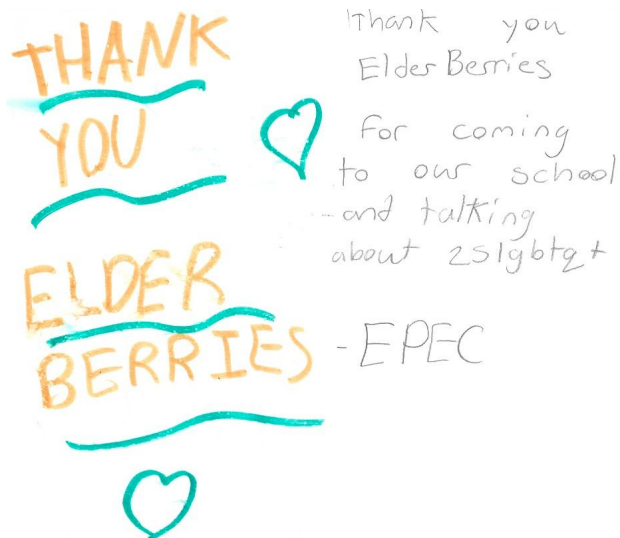 THANK
YOU
ELDER
BERRIES
Thank you
Elder Berries
For coming
to our school
-and talking
about 2slgbtq+
-EPEC